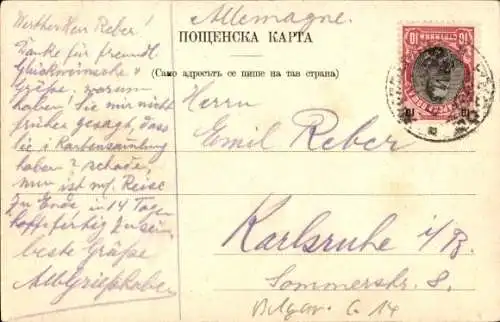 Allemagne.
ПОЩЕНСКА КАРТА
(Само адресътъ се пише на тая страна)
Werther Herr Reber!
Danke für freundl.
Glückwünsche &
Grüße, warum
haben Sie mir nicht
früher gesagt, dass
Sie 1 Kartensammlung
haben? schade,
nun ist m/. Reise
zu Ende in 14 Tagen
hoffe fertig zu sein.
beste Grüße
Herrn
Emil Reber
Karlsruhe i/B.
Sommerstr. 8.
Bulgar. G 14
10
СТОТИНКИ